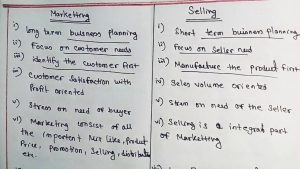 Marketting
i) long term buisness planning
ii) Focus on customer needs
iii) Identify the customer first
iv) Customer satisfaction with
Profit oriented
v) Stress on need of buyer
vi) Marketing consist of all
the important Mix like, Product
Price, Promotion, Selling, distribution
etc.
Selling
i) Short term buisness planning
ii) focus on Seller need
iii) Manufacture the product first
iv) Sales volume oriented
v) Stress on need of the Seller
vi) Selling is a integral part
of Marketting